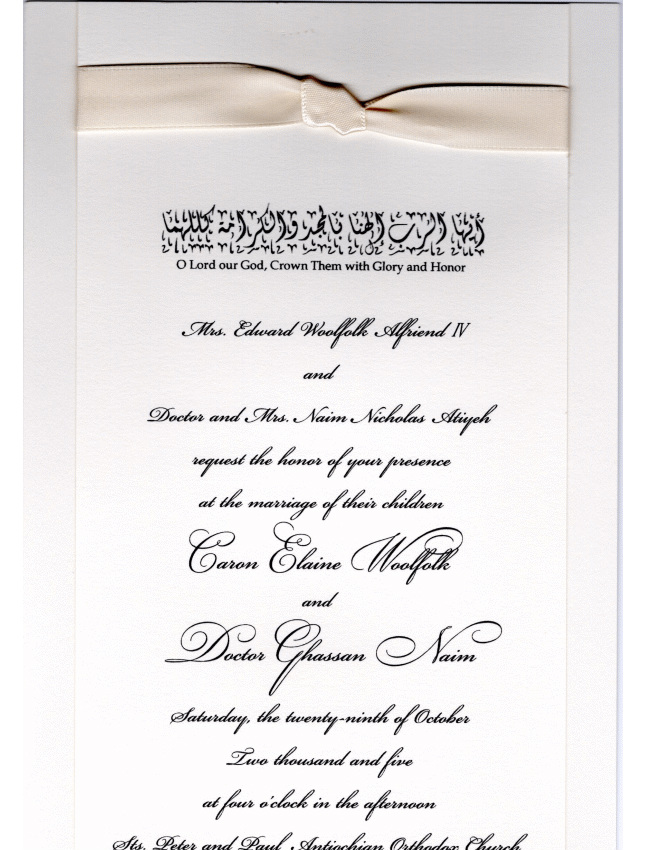 أيها الرب إلهنا بالمجد والكرامة كللهما
O Lord our God, Crown Them with Glory and Honor
Mrs. Edward Woolfolk Alfriend IV
and
Doctor and Mrs. Naim Nicholas Atiyeh
request the honor of your presence
at the marriage of their children
Caron Elaine Woolfolk
and
Doctor Ghassan Naim
Saturday, the twenty-ninth of October
Two thousand and five
at four o'clock in the afternoon
Sts. Peter and Paul Antiochian Orthodox Church